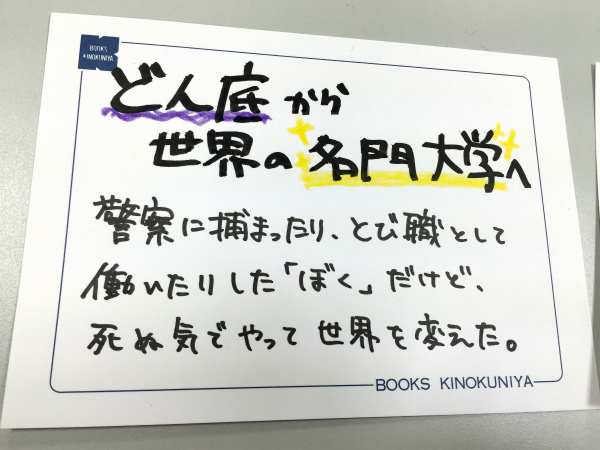 BOOKS
KINOKUNIYA
どん底から
世界の名門大学へ
警察に捕まったり、とび職として
働いたりした「ぼく」だけど、
死ぬ気でやって世界を変えた。
BOOKS KINOKUNIYA